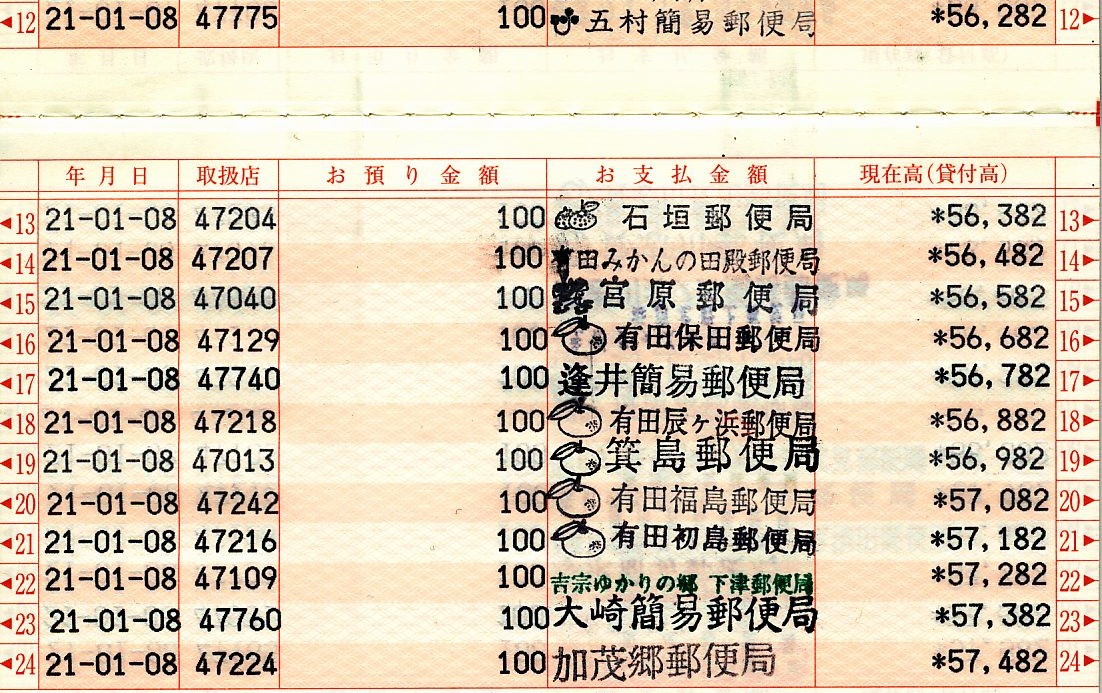 ◀12 21-01-08 47775 100 五村簡易郵便局 *56,282 12▶
年月日 取扱店 お預り金額 お支払金額 現在高(貸付高)
◀13 21-01-08 47204 100 石垣郵便局 *56,382 13▶
◀14 21-01-08 47207 100 有田みかんの田殿郵便局 *56,482 14▶
◀15 21-01-08 47040 100 宮原郵便局 *56,582 15▶
◀16 21-01-08 47129 100 有田保田郵便局 *56,682 16▶
◀17 21-01-08 47740 100 逢井簡易郵便局 *56,782 17▶
◀18 21-01-08 47218 100 有田辰ヶ浜郵便局 *56,882 18▶
◀19 21-01-08 47013 100 箕島郵便局 *56,982 19▶
◀20 21-01-08 47242 100 有田福島郵便局 *57,082 20▶
◀21 21-01-08 47216 100 有田初島郵便局 *57,182 21▶
◀22 21-01-08 47109 100 吉宗ゆかりの郷 下津郵便局 *57,282 22▶
◀23 21-01-08 47760 100 大崎簡易郵便局 *57,382 23▶
◀24 21-01-08 47224 100 加茂郷郵便局 *57,482 24▶